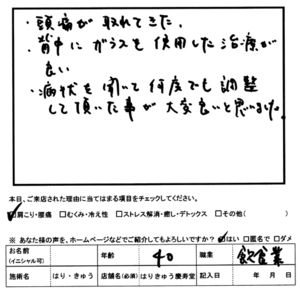 ・頭痛が取れてきた。
・背中にガラスを使用した治療が
良い
・病状を聞いて何度でも調整
して頂いた事が大変良いと思いました。
本日、ご来店された理由に当てはまる項目をチェックしてください。
☑肩こり・腰痛 □むくみ・冷え性 □ストレス解消・癒し・デトックス □その他( )
※ あなた様の声を、ホームページなどでご紹介してもよろしいですか？ ☑はい □匿名で □ダメ
お名前
(イニシャル可) 年齢 40 職業 飲食業
施術名 はり・きゅう 店舗名(必須) はりきゅう慶寿堂 記入日 年 月 日